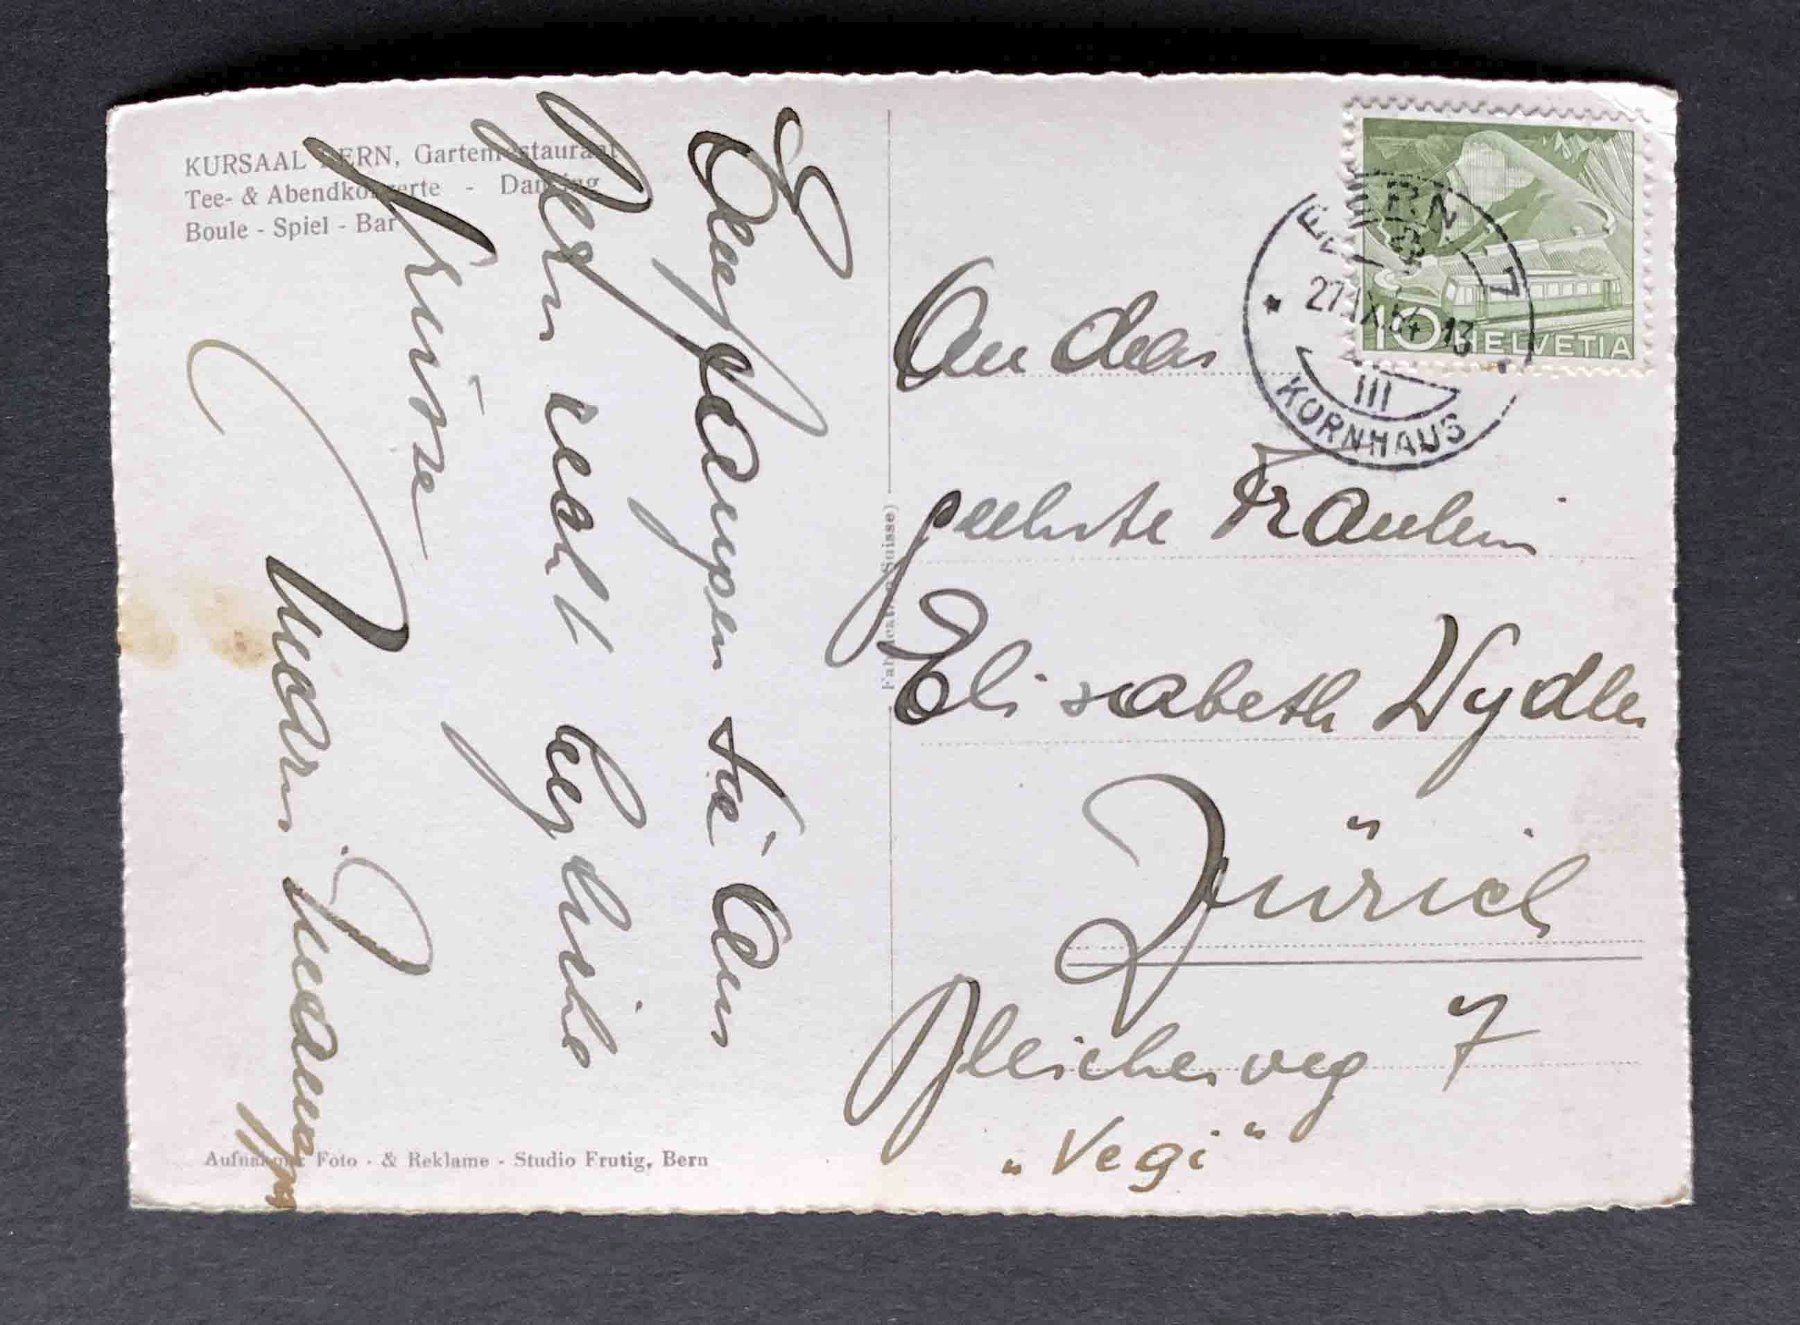 KURSAAL BERN, Gartenrestaurant
Tee- & Abendkonzerte - Dancing
Boule - Spiel - Bar
Empfangen sie aus
Bern recht herzliche
Grüsse
Aufnahme: Foto - & Reklame - Studio Frutig, Bern
(Fabrication Suisse)
BERN 7
27.IX.54 13
III
KORNHAUS
10 HELVETIA
An das
geehrte Fräulein
Elisabeth Wydler
Zürich
Bleicherweg 7
„Vegi"